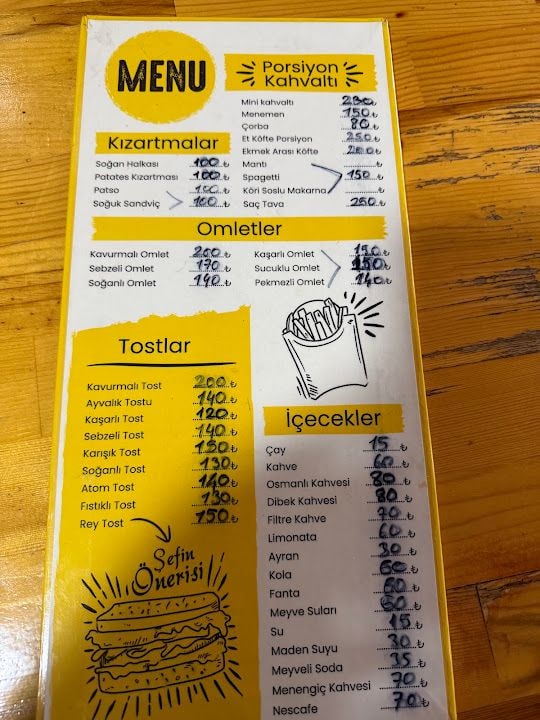 MENU
Porsiyon
Kahvaltı
Mini kahvaltı 230 ₺
Menemen 150 ₺
Çorba 80 ₺
Et Köfte Porsiyon 250 ₺
Ekmek Arası Köfte 200 ₺
Mantı
Spagetti 150 ₺
Köri Soslu Makarna ₺
Saç Tava 250 ₺
Kızartmalar
Soğan Halkası 100 ₺
Patates Kızartması 100 ₺
Patso 100 ₺
Soğuk Sandviç 100 ₺
Omletler
Kavurmalı Omlet 200 ₺
Sebzeli Omlet 170 ₺
Soğanlı Omlet 140 ₺
Kaşarlı Omlet 150 ₺
Sucuklu Omlet 150 ₺
Pekmezli Omlet 140 ₺
Tostlar
Kavurmalı Tost 200 ₺
Ayvalık Tostu 140 ₺
Kaşarlı Tost 120 ₺
Sebzeli Tost 140 ₺
Karışık Tost 150 ₺
Soğanlı Tost 130 ₺
Atom Tost 140 ₺
Fıstıklı Tost 130 ₺
Rey Tost 150 ₺
Şefin
Önerisi
İçecekler
Çay 15 ₺
Kahve 60 ₺
Osmanlı Kahvesi 80 ₺
Dibek Kahvesi 80 ₺
Filtre Kahve 70 ₺
Limonata 60 ₺
Ayran 30 ₺
Kola 60 ₺
Fanta 60 ₺
Meyve Suları 60 ₺
Su 15 ₺
Maden Suyu 30 ₺
Meyveli Soda 35 ₺
Menengiç Kahvesi 70 ₺
Nescafe 70 ₺